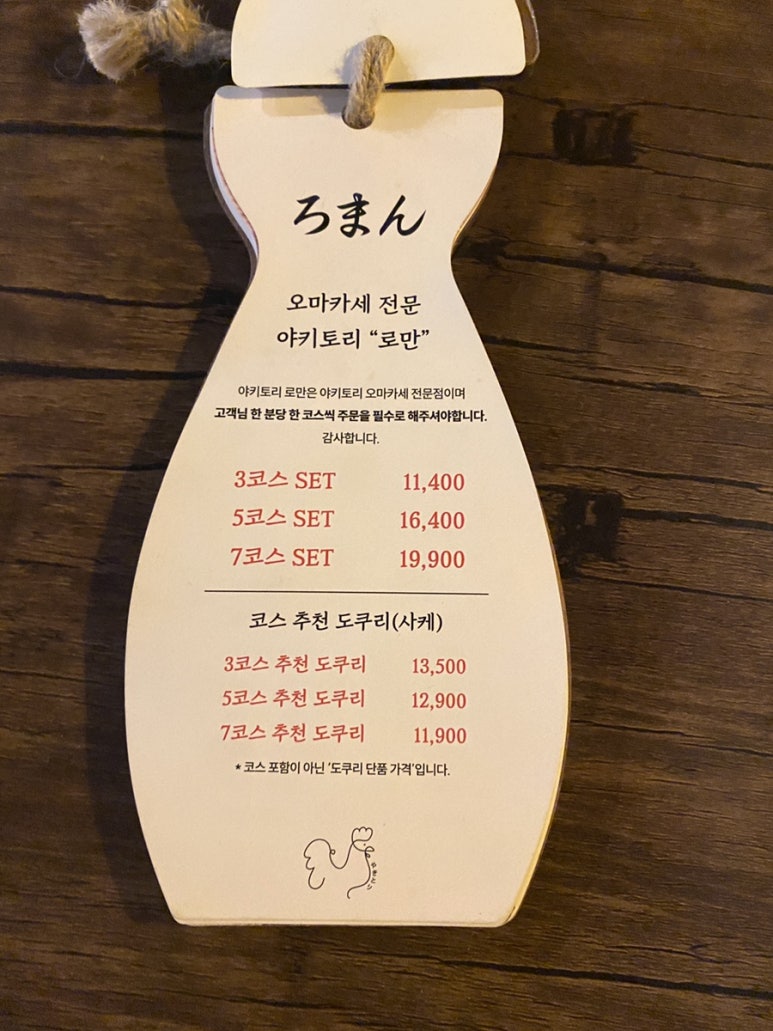 ろまん
오마카세 전문
야키토리 “로만”
야키토리 로만은 야키토리 오마카세 전문점이며
고객님 한 분당 한 코스씩 주문을 필수로 해주셔야합니다.
감사합니다.
3코스 SET 11,400
5코스 SET 16,400
7코스 SET 19,900
코스 추천 도쿠리(사케)
3코스 추천 도쿠리 13,500
5코스 추천 도쿠리 12,900
7코스 추천 도쿠리 11,900
* 코스 포함이 아닌 ‘도쿠리 단품 가격’입니다.